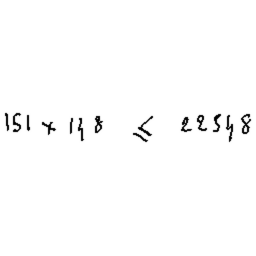 151 × 148 ≤ 22548